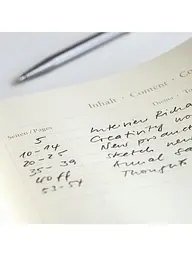 Inhalt · Content · 
Thema · 
Seiten / Pages
5 Interview Richa
10-14 Creativity wo
20-25 New product
35-39 Sketch new
40 ff Annual Sa
53-54 Thoughts